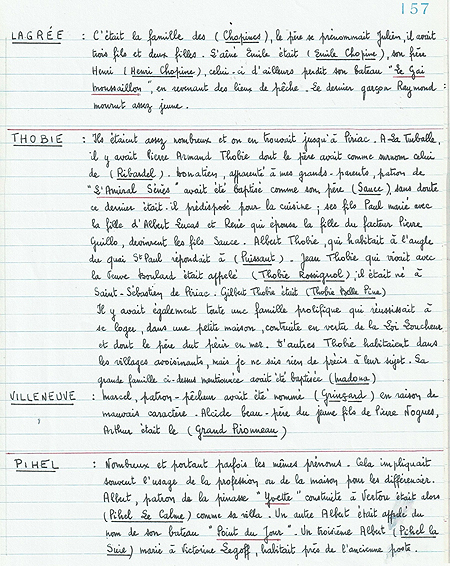 157
LAGRÉE : C'était la famille des (Chopines), le père se prénommait Julien, il avait
trois fils et deux filles. L'aîné Emile était (Emile Chopine), son frère
Henri (Henri Chopine), celui-ci d'ailleurs perdit son bateau "Le Gai
moussaillon", en revenant des lieux de pêche. Le dernier garçon Raymond
mourut assez jeune.
THOBIE : Ils étaient assez nombreux et on en trouvait jusqu'à Piriac. A La Turballe,
il y avait Pierre Armand Thobie dont le père avait comme surnom celui
de (Ribardel). Donatien, apparenté à mes grands-parents, patron de
"L'Amiral Sénès" avait été baptisé comme son père (Sauce) sans doute
ce dernier était-il prédisposé pour la cuisine ; ses fils Paul marié avec
la fille d'Albert Lucas et René qui épousa la fille du facteur Pierre
Guillo, devinrent les fils Sauce. Albert Thobie, qui habitait à l'angle
du quai St Paul répondait à (Puissant). Jean Thobie qui vivait avec
la veuve Boulard était appelé (Thobie Rossignol) ; il était né à
Saint-Sébastien de Piriac. Gilbert Thobie était (Thobie Belle Pine)
Il y avait également toute une famille prolifique qui réussissait à
se loger, dans une petite maison, contruite en vertu de la Loi Loucheur
et dont le père dut périr en mer. D'autres Thobie habitaient dans
les villages avoisinants, mais je ne sais rien de précis à leur sujet. La
grande famille ci-dessus mentionnée avait été baptisée (Madona)
VILLENEUVE : Marcel, patron-pêcheur avait été nommé (Gringard) en raison de
mauvais caractère. Alcide beau-père du jeune fils de Pierre Nogues,
Arthur était le (Grand Pironneau)
PIHEL : Nombreux et portant parfois les mêmes prénoms. Cela impliquait
souvent l'usage de la profession ou de la maison pour les différencier.
Albert, patron de la pinasse "Yvette" construite à Vertou était alors
(Pihel Le Calme) comme sa villa. Un autre Albert était appelé du
nom de son bateau "Point du Jour". Un troisième Albert (Pihel la
Suie) marié à Victorine Legoff, habitait près de l'ancienne poste.